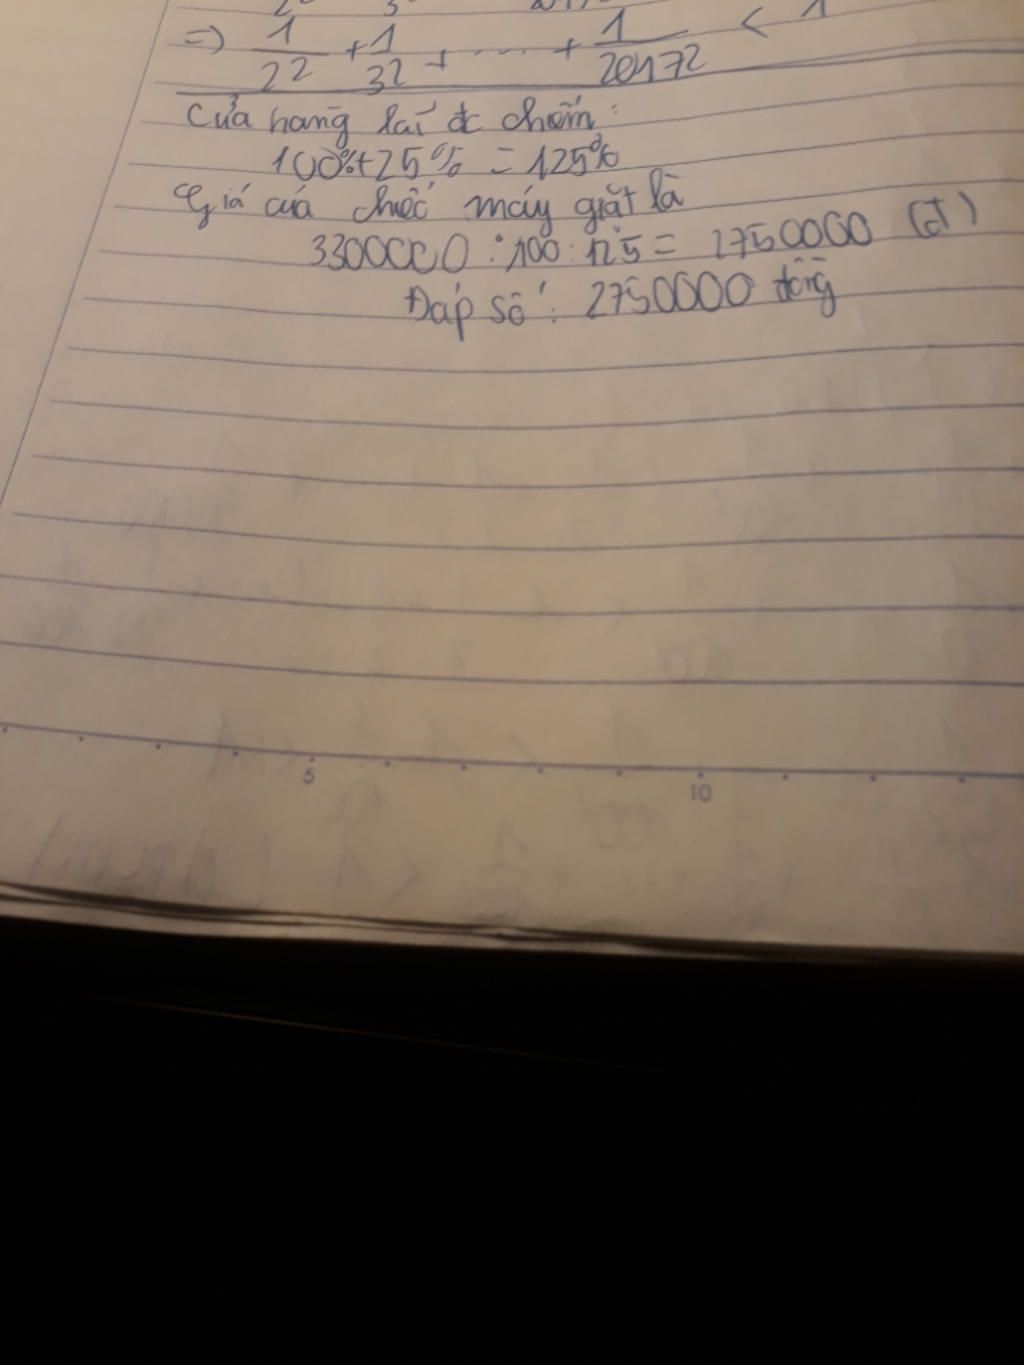 => 1/2² + 1/3² + ..... + 1/2017² < 1
Cửa hàng lãi đc chếm :
100%+25% = 125%
Giá của chiếc máy giặt là
3300000 : 100 . 125 = 2750000 (đ)
Đáp số : 2750000 đồng
5 10